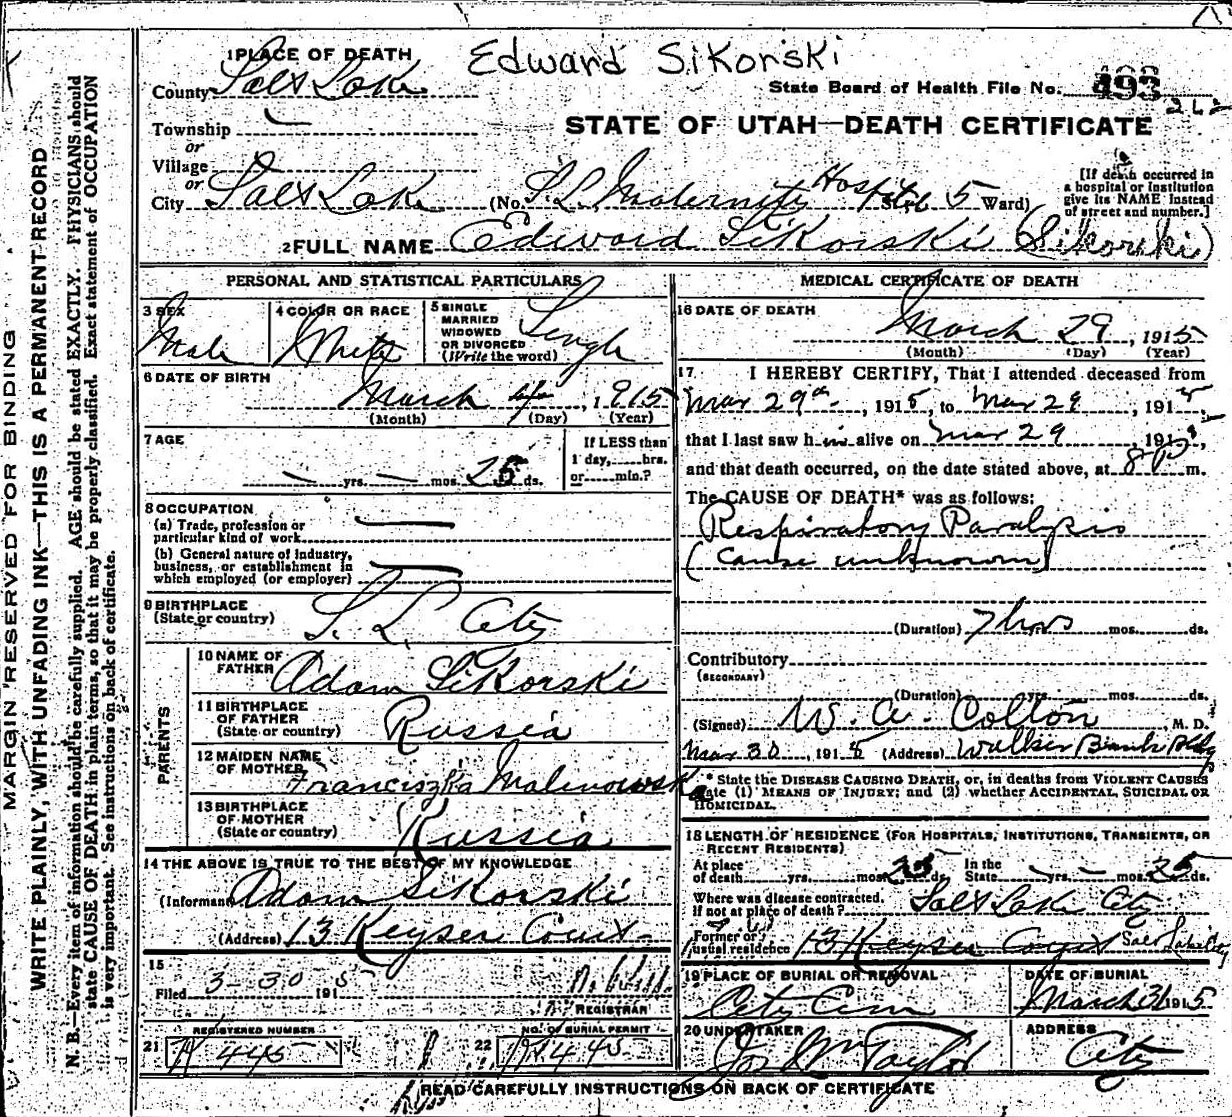 Edward Sikorski
1 PLACE OF DEATH
County Salt Lake
State Board of Health File No. 493
262
STATE OF UTAH—DEATH CERTIFICATE
Township —
or
Village
or
City Salt Lake (No. S. L. Maternity Hospital St. 5 Ward)
[If death occurred in
a hospital or institution
give its NAME instead
of street and number.]
2 FULL NAME Edward Sikorski (Sikorski)
PERSONAL AND STATISTICAL PARTICULARS
3 SEX
Male
4 COLOR OR RACE
White
5 SINGLE
MARRIED
WIDOWED
OR DIVORCED
(Write the word)
Single
6 DATE OF BIRTH
March 4, 1915
(Month) (Day) (Year)
7 AGE
— yrs. — mos. 25 ds.
If LESS than
1 day, hrs.
or min.?
8 OCCUPATION
(a) Trade, profession or
particular kind of work —
(b) General nature of industry,
business, or establishment in
which employed (or employer) —
9 BIRTHPLACE
(State or country)
S. L. City
PARENTS
10 NAME OF
FATHER
Adam Sikorski
11 BIRTHPLACE
OF FATHER
(State or country)
Russia
12 MAIDEN NAME
OF MOTHER
Franciszka Malinowska
13 BIRTHPLACE
OF MOTHER
(State or country)
Russia
14 THE ABOVE IS TRUE TO THE BEST OF MY KNOWLEDGE
(Informant) Adam Sikorski
(Address) 13 Keyser Court
15
Filed 3-30 1915
REGISTRAR
REGISTERED NUMBER
21 K 445
NO. OF BURIAL PERMIT
22 445
MEDICAL CERTIFICATE OF DEATH
16 DATE OF DEATH
March 29, 1915
(Month) (Day) (Year)
17 I HEREBY CERTIFY, That I attended deceased from
Mar 29, 1915, to Mar 29, 1915,
that I last saw him alive on Mar 29, 1915,
and that death occurred, on the date stated above, at 8 p m.
The CAUSE OF DEATH* was as follows:
Respiratory Paralysis
(cause unknown)
(Duration) 7 hrs mos. ds.
Contributory
(SECONDARY)
(Duration) yrs. mos. ds.
(Signed) W. A. Colton M. D.
Mar 30, 1915 (Address) Walker Bank Bldg
* State the DISEASE CAUSING DEATH, or, in deaths from VIOLENT CAUSES
state (1) MEANS OF INJURY; and (2) whether ACCIDENTAL, SUICIDAL OR
HOMICIDAL.
18 LENGTH OF RESIDENCE (FOR HOSPITALS, INSTITUTIONS, TRANSIENTS, OR
RECENT RESIDENTS)
At place
of death yrs. mos. 25 ds.
In the
State — yrs. — mos. 25 ds.
Where was disease contracted,
if not at place of death? Salt Lake City
Former or
usual residence 13 Keyser Court Salt Lake City
19 PLACE OF BURIAL OR REMOVAL
City Cem
DATE OF BURIAL
March 31 1915
20 UNDERTAKER
Jos Wm Taylor
ADDRESS
City
READ CAREFULLY INSTRUCTIONS ON BACK OF CERTIFICATE
MARGIN RESERVED FOR BINDING
WRITE PLAINLY, WITH UNFADING INK—THIS IS A PERMANENT RECORD
N. B.—Every item of information should be carefully supplied. AGE should be stated EXACTLY. PHYSICIANS should
state CAUSE OF DEATH in plain terms, so that it may be properly classified. Exact statement of OCCUPATION
is very important. See instructions on back of certificate.